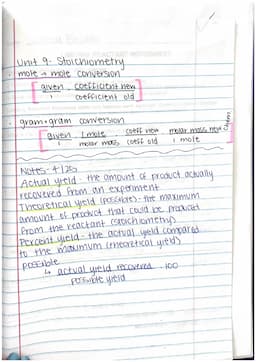 Unit 9- Stoichiometry
· mole → mole conversion
given . coefficient new
1 coefficient old
· gram → gram conversion
given . 1 mole coeff new molar mass new
1 molar mass coeff old 1 mole
Notes- 4/25
Actual yield- the amount of product actually
recovered from an experiment
Theoretical yield (possible)- the maximum
amount of product that could be produced
from the reactant (stoichiometry)
Percent yield- the actual yield compared
to the maximum (theoretical yield)
possible
↳ actual yield recovered · 100
possible yield